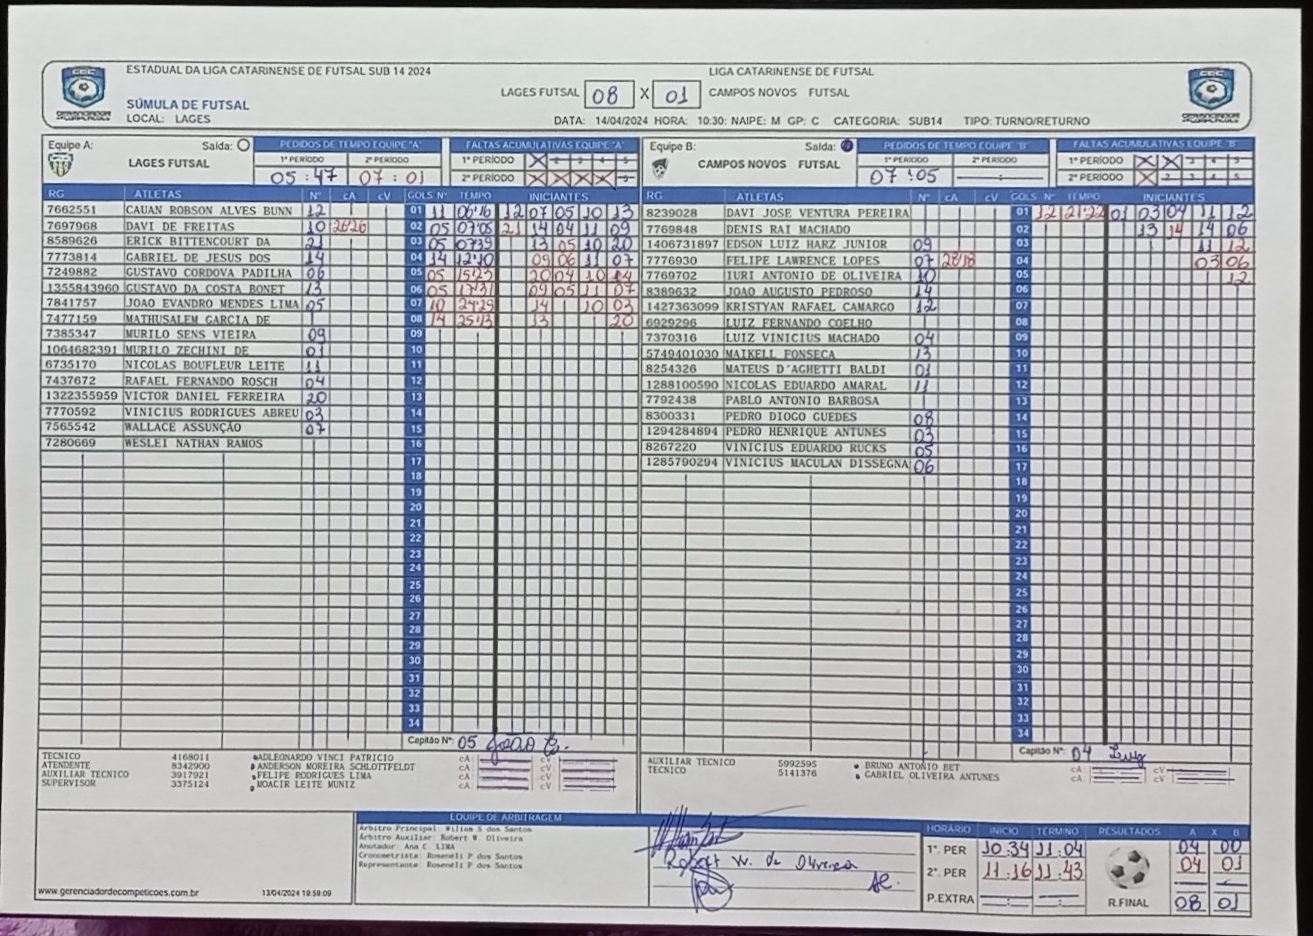 ESTADUAL DA LIGA CATARINENSE DE FUTSAL SUB 14 2024
LIGA CATARINENSE DE FUTSAL
SÚMULA DE FUTSAL
LAGES FUTSAL 08 X 01 CAMPOS NOVOS FUTSAL
LOCAL: LAGES
DATA: 14/04/2024 HORA: 10:30: NAIPE: M GP: C CATEGORIA: SUB14 TIPO: TURNO/RETURNO
Equipe A: Saída:
LAGES FUTSAL
PEDIDOS DE TEMPO EQUIPE "A"
1º PERÍODO 2º PERÍODO
05:47 07:01
FALTAS ACUMULATIVAS EQUIPE "A"
1º PERÍODO X 2 3 4 5
2º PERÍODO X X X X 5
RG ATLETAS Nº cA cV
7662551 CAUAN ROBSON ALVES BUNN 12
7697968 DAVI DE FREITAS 10 26:26
8589626 ERICK BITTENCOURT DA 21
7773814 GABRIEL DE JESUS DOS 14
7249882 GUSTAVO CORDOVA PADILHA 06
1355843960 GUSTAVO DA COSTA BONET 13
7841757 JOAO EVANDRO MENDES LIMA 05
7477159 MATHUSALEM GARCIA DE
7385347 MURILO SENS VIEIRA 09
1064682391 MURILO ZECHINI DE 01
6735170 NICOLAS BOUFLEUR LEITE 11
7437672 RAFAEL FERNANDO ROSCH 04
1322355959 VICTOR DANIEL FERREIRA 20
7770592 VINICIUS RODRIGUES ABREU 03
7565542 WALLACE ASSUNÇÃO 07
7280669 WESLEI NATHAN RAMOS
GOLS Nº TEMPO INICIANTES
01 11 06:16 12 07 05 10 13
02 05 07:05 21 14 04 11 09
03 05 07:39 13 05 10 20
04 14 12:10 09 06 11 07
05 05 15:23 20 04 10 14
06 05 17:31 09 05 11 07
07 10 24:29 14 10 03
08 14 25:13 13 20
09
10
11
12
13
14
15
16
17
18
19
20
21
22
23
24
25
26
27
28
29
30
31
32
33
34
Capitão Nº: 05 João E.
TECNICO 4168011 ADLEONARDO VINCI PATRICIO cA cV
ATENDENTE 8342900 ANDERSON MOREIRA SCHLOTTFELDT cA cV
AUXILIAR TECNICO 3917921 FELIPE RODRIGUES LIMA cA cV
SUPERVISOR 3375124 MOACIR LEITE MUNIZ cA cV
Equipe B: Saída:
CAMPOS NOVOS FUTSAL
PEDIDOS DE TEMPO EQUIPE "B"
1º PERÍODO 2º PERÍODO
07:05
FALTAS ACUMULATIVAS EQUIPE "B"
1º PERÍODO X X 3 4 5
2º PERÍODO X 2 3 4 5
RG ATLETAS Nº cA cV
8239028 DAVI JOSE VENTURA PEREIRA
7769848 DENIS RAI MACHADO
1406731897 EDSON LUIZ HARZ JUNIOR 09
7776930 FELIPE LAWRENCE LOPES 07 28:18
7769702 IURI ANTONIO DE OLIVEIRA 10
8389632 JOAO AUGUSTO PEDROSO 14
1427363099 KRISTYAN RAFAEL CAMARGO 12
6929296 LUIZ FERNANDO COELHO
7370316 LUIZ VINICIUS MACHADO 04
5749401030 MAIKELL FONSECA 13
8254326 MATEUS D´AGHETTI BALDI 01
1288100590 NICOLAS EDUARDO AMARAL 11
7792438 PABLO ANTONIO BARBOSA
8300331 PEDRO DIOGO GUEDES 08
1294284894 PEDRO HENRIQUE ANTUNES 03
8267220 VINICIUS EDUARDO RUCKS 05
1285790294 VINICIUS MACULAN DISSEGNA 06
GOLS Nº TEMPO INICIANTES
01 12 21:22 01 03 04 11 12
02 13 14 14 06
03 11 12
04 03 06
05 12
06
07
08
09
10
11
12
13
14
15
16
17
18
19
20
21
22
23
24
25
26
27
28
29
30
31
32
33
34
Capitão Nº: 04 Luiz
AUXILIAR TECNICO 5992595 BRUNO ANTONIO BET cA cV
TECNICO 5141376 GABRIEL OLIVEIRA ANTUNES cA cV
EQUIPE DE ARBITRAGEM
Arbitro Principal: Wiliam S dos Santos
Arbitro Auxiliar: Robert W. Oliveira
Anotador: Ana C. LIMA
Cronometrista: Roseneli P dos Santos
Representante: Roseneli P dos Santos
Robert W. de Oliveira
HORÁRIO INICIO TÉRMINO RESULTADOS A X B
1º. PER 10:34 11:04 04 00
2º. PER 11:16 11:43 04 01
P.EXTRA
R.FINAL 08 01
www.gerenciadordecompeticoes.com.br 13/04/2024 19:59:09